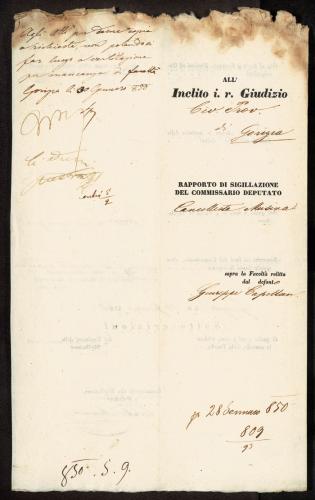 Agli Atti per darne copia
a richiesta, non potendosi
far luogo a ventilazione
per mancanza di facoltà
Gorizia li 30 Gennaro 850
ALL'
Inclito i. r. Giudizio
Civ. Prov.
di
Gorizia
RAPPORTO DI SIGILLAZIONE
DEL COMMISSARIO DEPUTATO
Cancellista Musina
sopra la Facoltà relitta
dal defunt.
Giuseppe Capellan
pr 28 Gennaro 850
809
850. S. 9.